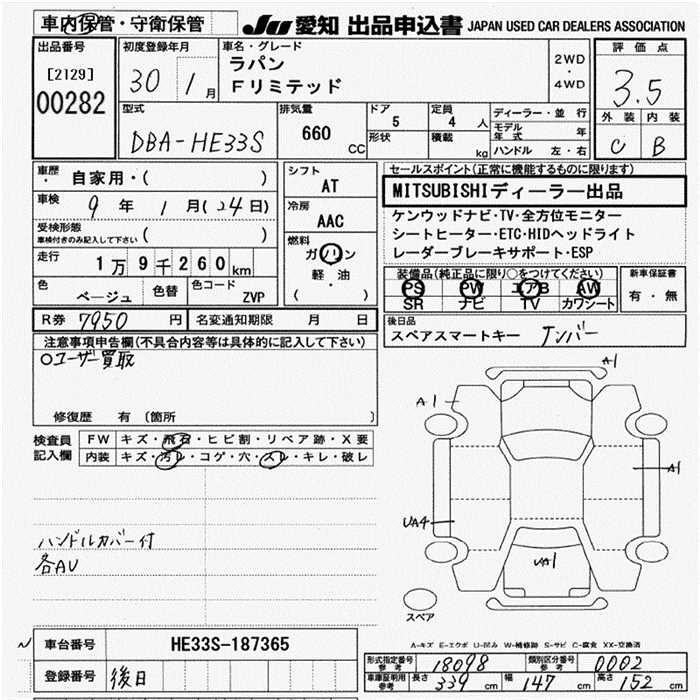 車内保管・守衛保管 JU 愛知 出品申込書 JAPAN USED CAR DEALERS ASSOCIATION
出品番号
[2129]
00282
初度登録年月
30 1月
車名・グレード
ラパン
Fリミテッド
2WD
・
4WD
評価点
3.5
外装 内装
C B
型式
DBA-HE33S
排気量
660 CC
ドア
5
形状
定員
4 人
積載 kg
ディーラー・並行
モデル年式 年
ハンドル 左・右
車歴・ 自家用・( )
車検 9年 1月(24日)
受検形態
車検付きのみ記入して下さい ( )
走行 1万9千260km
色 ベージュ 色替 色コード ZVP
シフト
AT
冷房
AAC
燃料
ガソリン
軽・油
( )
セールスポイント(正常に機能するものに限ります)
MITSUBISHIディーラー出品
ケンウッドナビ・TV・全方位モニター
シートヒーター・ETC・HIDヘッドライト
レーダーブレーキサポート・ESP
装備品(純正品に限り○をつけてください)
PS PW エアB AW
SR ナビ TV カワシート
新車保証書
有・無
R券 7950 円 名変通知期限 月 日
後日品
スペアスマートキー ナンバー
注意事項申告欄(不具合内容等は具体的に記入して下さい)
○ユーザー買取
修復歴 有 〔箇所 〕
検査員記入欄
FW キズ・飛石・ヒビ割・リペア跡・X要
内装 キズ・汚レ・コゲ・穴・スレ・キレ・破レ
ハンドルカバー付
各AU
A1
A1
A1
UA4
UA1
スペア
A-キズ E-エクボ U-凹み W-補修跡 S-サビ C-腐食 XX-交換済
車台番号 HE33S-187365
登録番号 後日
形式指定番号 参考 18098 類別区分番号 参考 0002
車庫証明用 参考 長さ 339 cm 幅 147 cm 高さ 152 cm